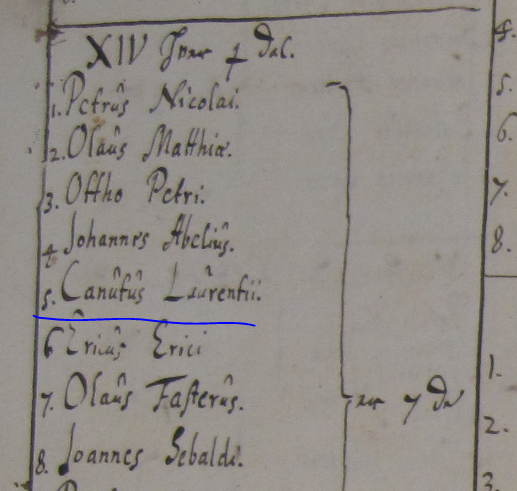 XIV
1. Petrus Nicolai.
2. Olaus Matthiæ.
3. Ottho Petri.
4 Johannes Abelius.
5. Canutus Laurentii.
6 Ericus Erici
7. Olaus Fasterus.
8. Joannes Sebaldi.
4.
5.
6.
7.
8.
1.
2.
3.